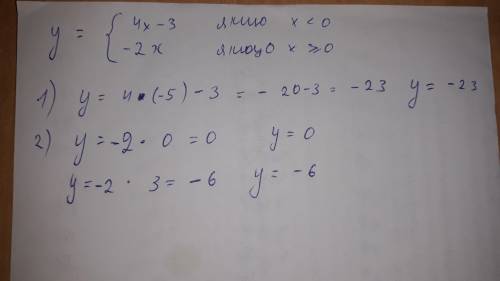 y = { 4x - 3 якщо x < 0
-2x якщо x ≥ 0
1) y = 4 · (-5) - 3 = - 20 - 3 = - 23 y = - 23
2) y = -2 · 0 = 0 y = 0
y = -2 · 3 = - 6 y = - 6